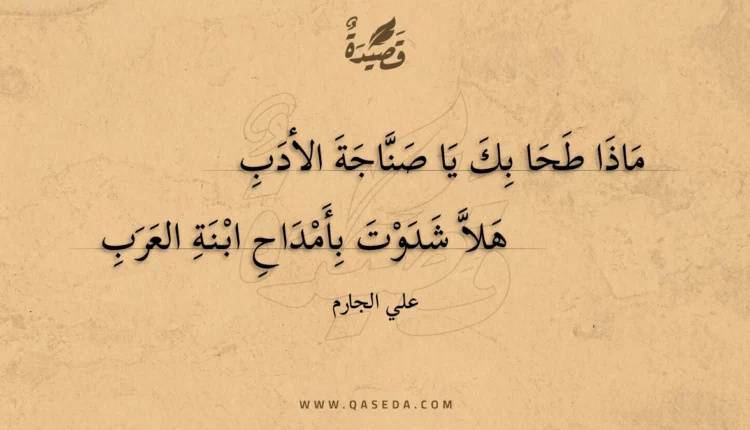 قَصِيدَةٌ
مَاذَا طَحَا بِكَ يَا صَنَّاجَةَ الأدَبِ
هَلاَّ شَدَوْتَ بِأَمْدَاحِ ابْنَةِ العَرَبِ
علي الجارم
WWW.QASEDA.COM